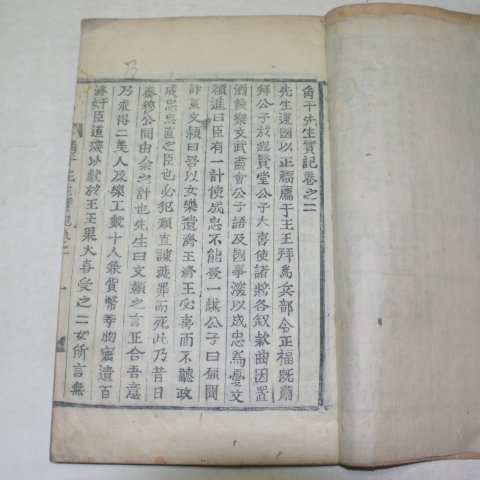 角干先生實記卷之二
先生還國以正福薦于王王拜爲兵部令正福旣肅
拜公子放迎賢堂公子大喜使諸將各叙欸曲因置
酒設樂文武盡會公子語及國事深以成忠爲憂文
穎進曰臣有一計使成忠不能發一謀公子曰願聞
計策文穎曰昔以女樂遺齊王齊王必喜而不聽政
成忠忠直之臣也必犯顔直諫獲罪而死此乃昔日
秦穆公間由余之計也先生曰文穎之言正合吾意
乃求得二美人及樂工數十人乘貨幣等物密遺百
濟奸臣道琛以獻於王王果大喜受之二女所言無
角干先生實記卷之二 一
乃